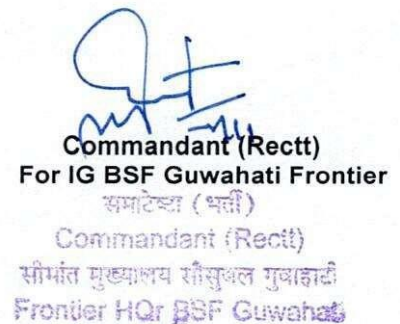 Commandant (Rectt)
For IG BSF Guwahati Frontier
समादेष्टा (भर्ती)
Commandant (Rectt)
सीमांत मुख्यालय सीसुबल गुवाहाटी
Frontier HQr BSF Guwahati